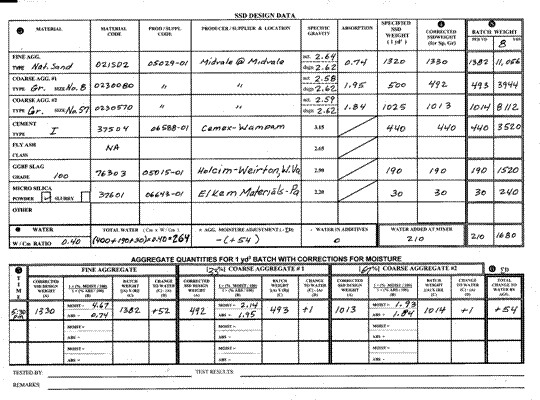 SSD DESIGN DATA
MATERIAL MATERIAL CODE PROD / SUPPL. CODE PRODUCER / SUPPLIER & LOCATION SPECIFIC GRAVITY ABSORPTION SPECIFIED SSD WEIGHT (1 yd³) CORRECTED SSD WEIGHT (for Sp. Gr) BATCH WEIGHT
PER YD 8 YDS
FINE AGG. TYPE Nat. Sand 021502 05029-01 Midvale @ Midvale act. 2.64 dsgn 2.62 0.74 1320 1330 1382 11,056
COARSE AGG. #1 TYPE Gr. SIZE No. 8 0230080 " " act. 2.58 dsgn 2.62 1.95 500 492 493 3944
COARSE AGG. #2 TYPE Gr. SIZE No 57 0230570 " " act. 2.59 dsgn 2.62 1.84 1025 1013 1014 8112
CEMENT TYPE I 37504 06588-01 Cemex-Wampam 3.15 440 440 440 3520
FLY ASH CLASS NA 2.65
GGBF SLAG GRADE 100 76303 05015-01 Holcim-Weirton, W.Va 2.90 190 190 190 1520
MICRO SILICA POWDER SLURRY 37601 06643-01 Elkem Materials-Pa 2.20 30 30 30 240
OTHER
WATER TOTAL WATER (Cm x W / Cm) AGG. MOISTURE ADJUSTMENT WATER IN ADDITIVES WATER ADDED AT MIXER
W / Cm RATIO 0.40 (400+190+30)x0.40=264 -(+54) 0 210 210 1680
AGGREGATE QUANTITIES FOR 1 yd³ BATCH WITH CORRECTIONS FOR MOISTURE
TIME FINE AGGREGATE COARSE AGGREGATE #1 COARSE AGGREGATE #2
CORRECTED SSD DESIGN WEIGHT (A) 1 + (% MOIST / 100) 1 + (% ABS / 100) (B) BATCH WEIGHT (A) X (B) (C) CHANGE TO WATER (C) - (A) (D) CORRECTED SSD DESIGN WEIGHT (A) 1 + (% MOIST / 100) 1 + (% ABS / 100) (B) BATCH WEIGHT (A) X (B) (C) CHANGE TO WATER (C) - (A) (D) CORRECTED SSD DESIGN WEIGHT (A) 1 + (% MOIST / 100) 1 + (% ABS / 100) (B) BATCH WEIGHT (A) X (B) (C) CHANGE TO WATER (C) - (A) (D) TOTAL CHANGE TO WATER
5:30 pm 1330 MOIST = 4.67 ABS = 0.74 1382 +52 492 MOIST = 2.14 ABS = 1.95 493 +1 1013 MOIST = 1.93 ABS = 1.84 1014 +1 +54
MOIST = MOIST = MOIST =
ABS = ABS = ABS =
MOIST = MOIST = MOIST =
ABS = ABS = ABS =
TESTED BY: TEST RESULTS:
REMARKS: